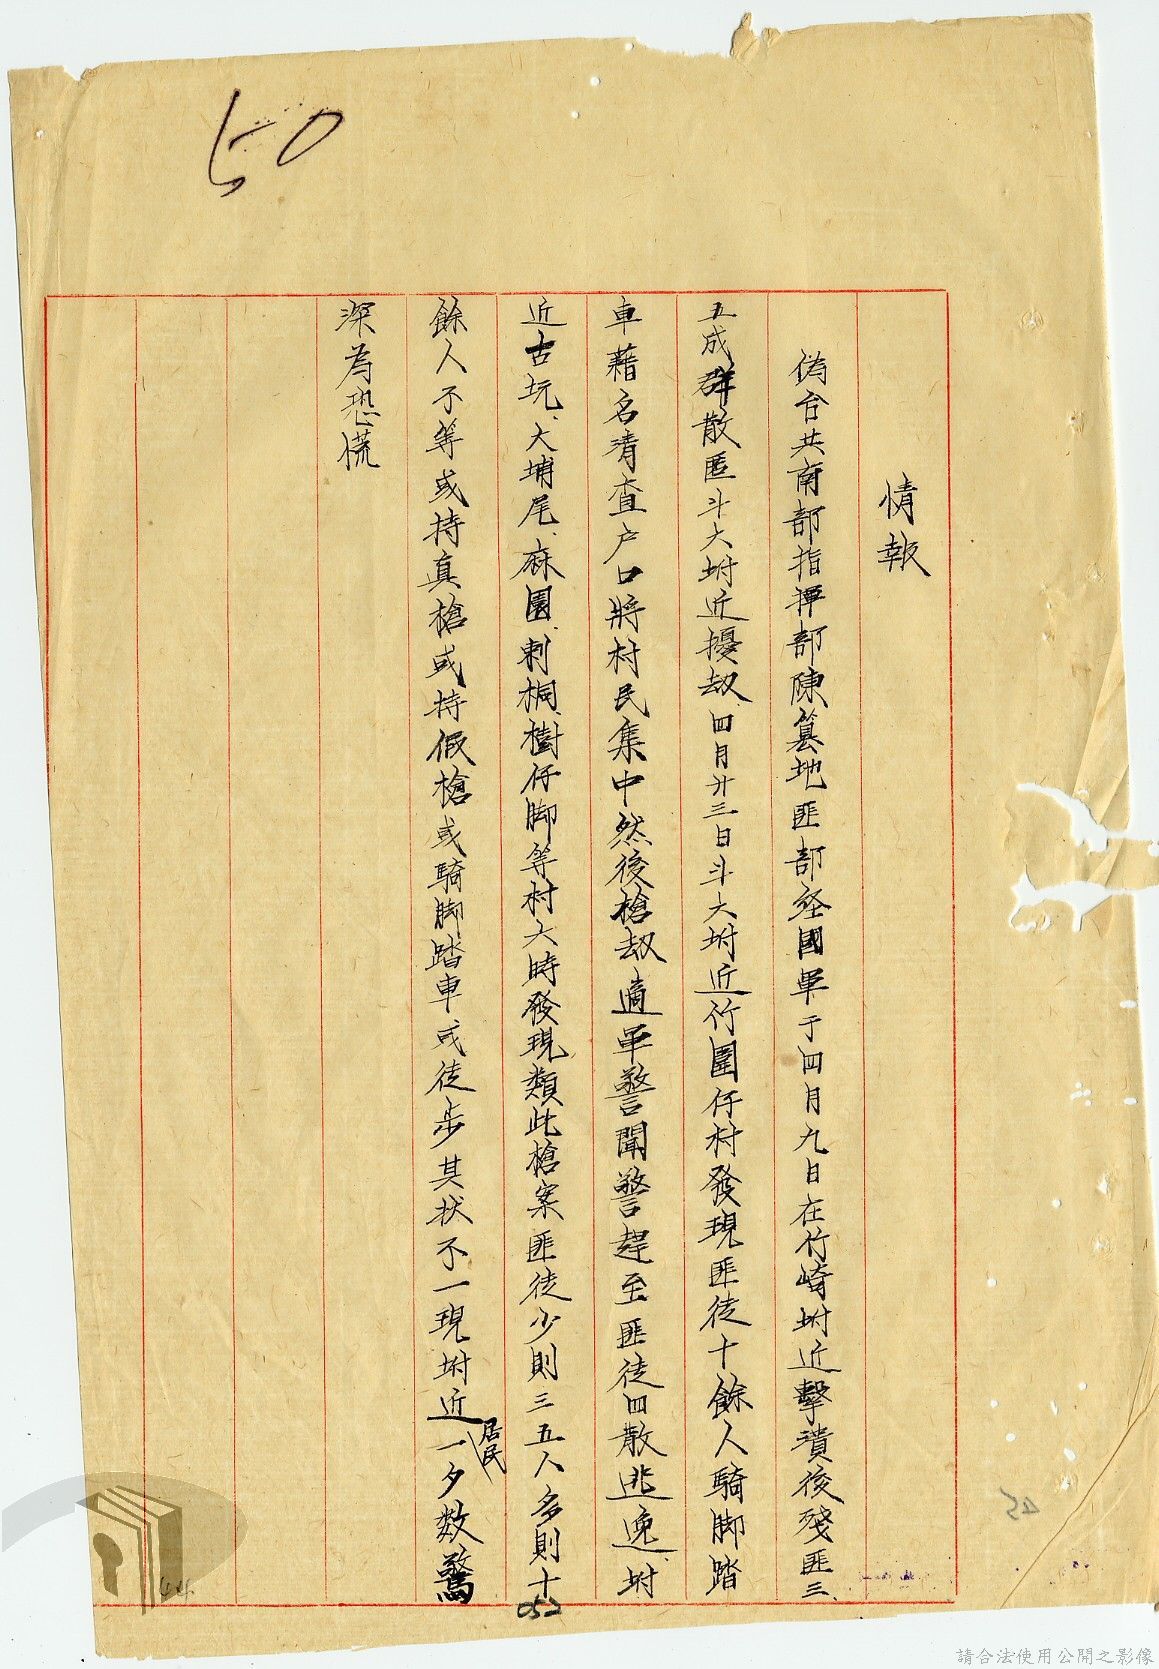 50
情報
偽台共南部指揮部陳篡地匪部經國軍于四月九日在竹崎坿近擊潰後殘匪三、
五成群散匿斗六坿近擾刼四月廿三日斗六坿近竹圍仔村發現匪徒十餘人騎脚踏
車藉名清查户口將村民集中然後槍刼適軍警聞警趕至匪徒四散逃逸、坿
近古坑、大埔尾、麻園、刺桐、樹仔脚等村六時發現類此槍案匪徒少則三五人多則十
餘人不等或持真槍或持假槍或騎脚踏車或徒步其狀不一現坿近居民一夕数驚
深為恐慌
052
44
請合法使用公開之影像